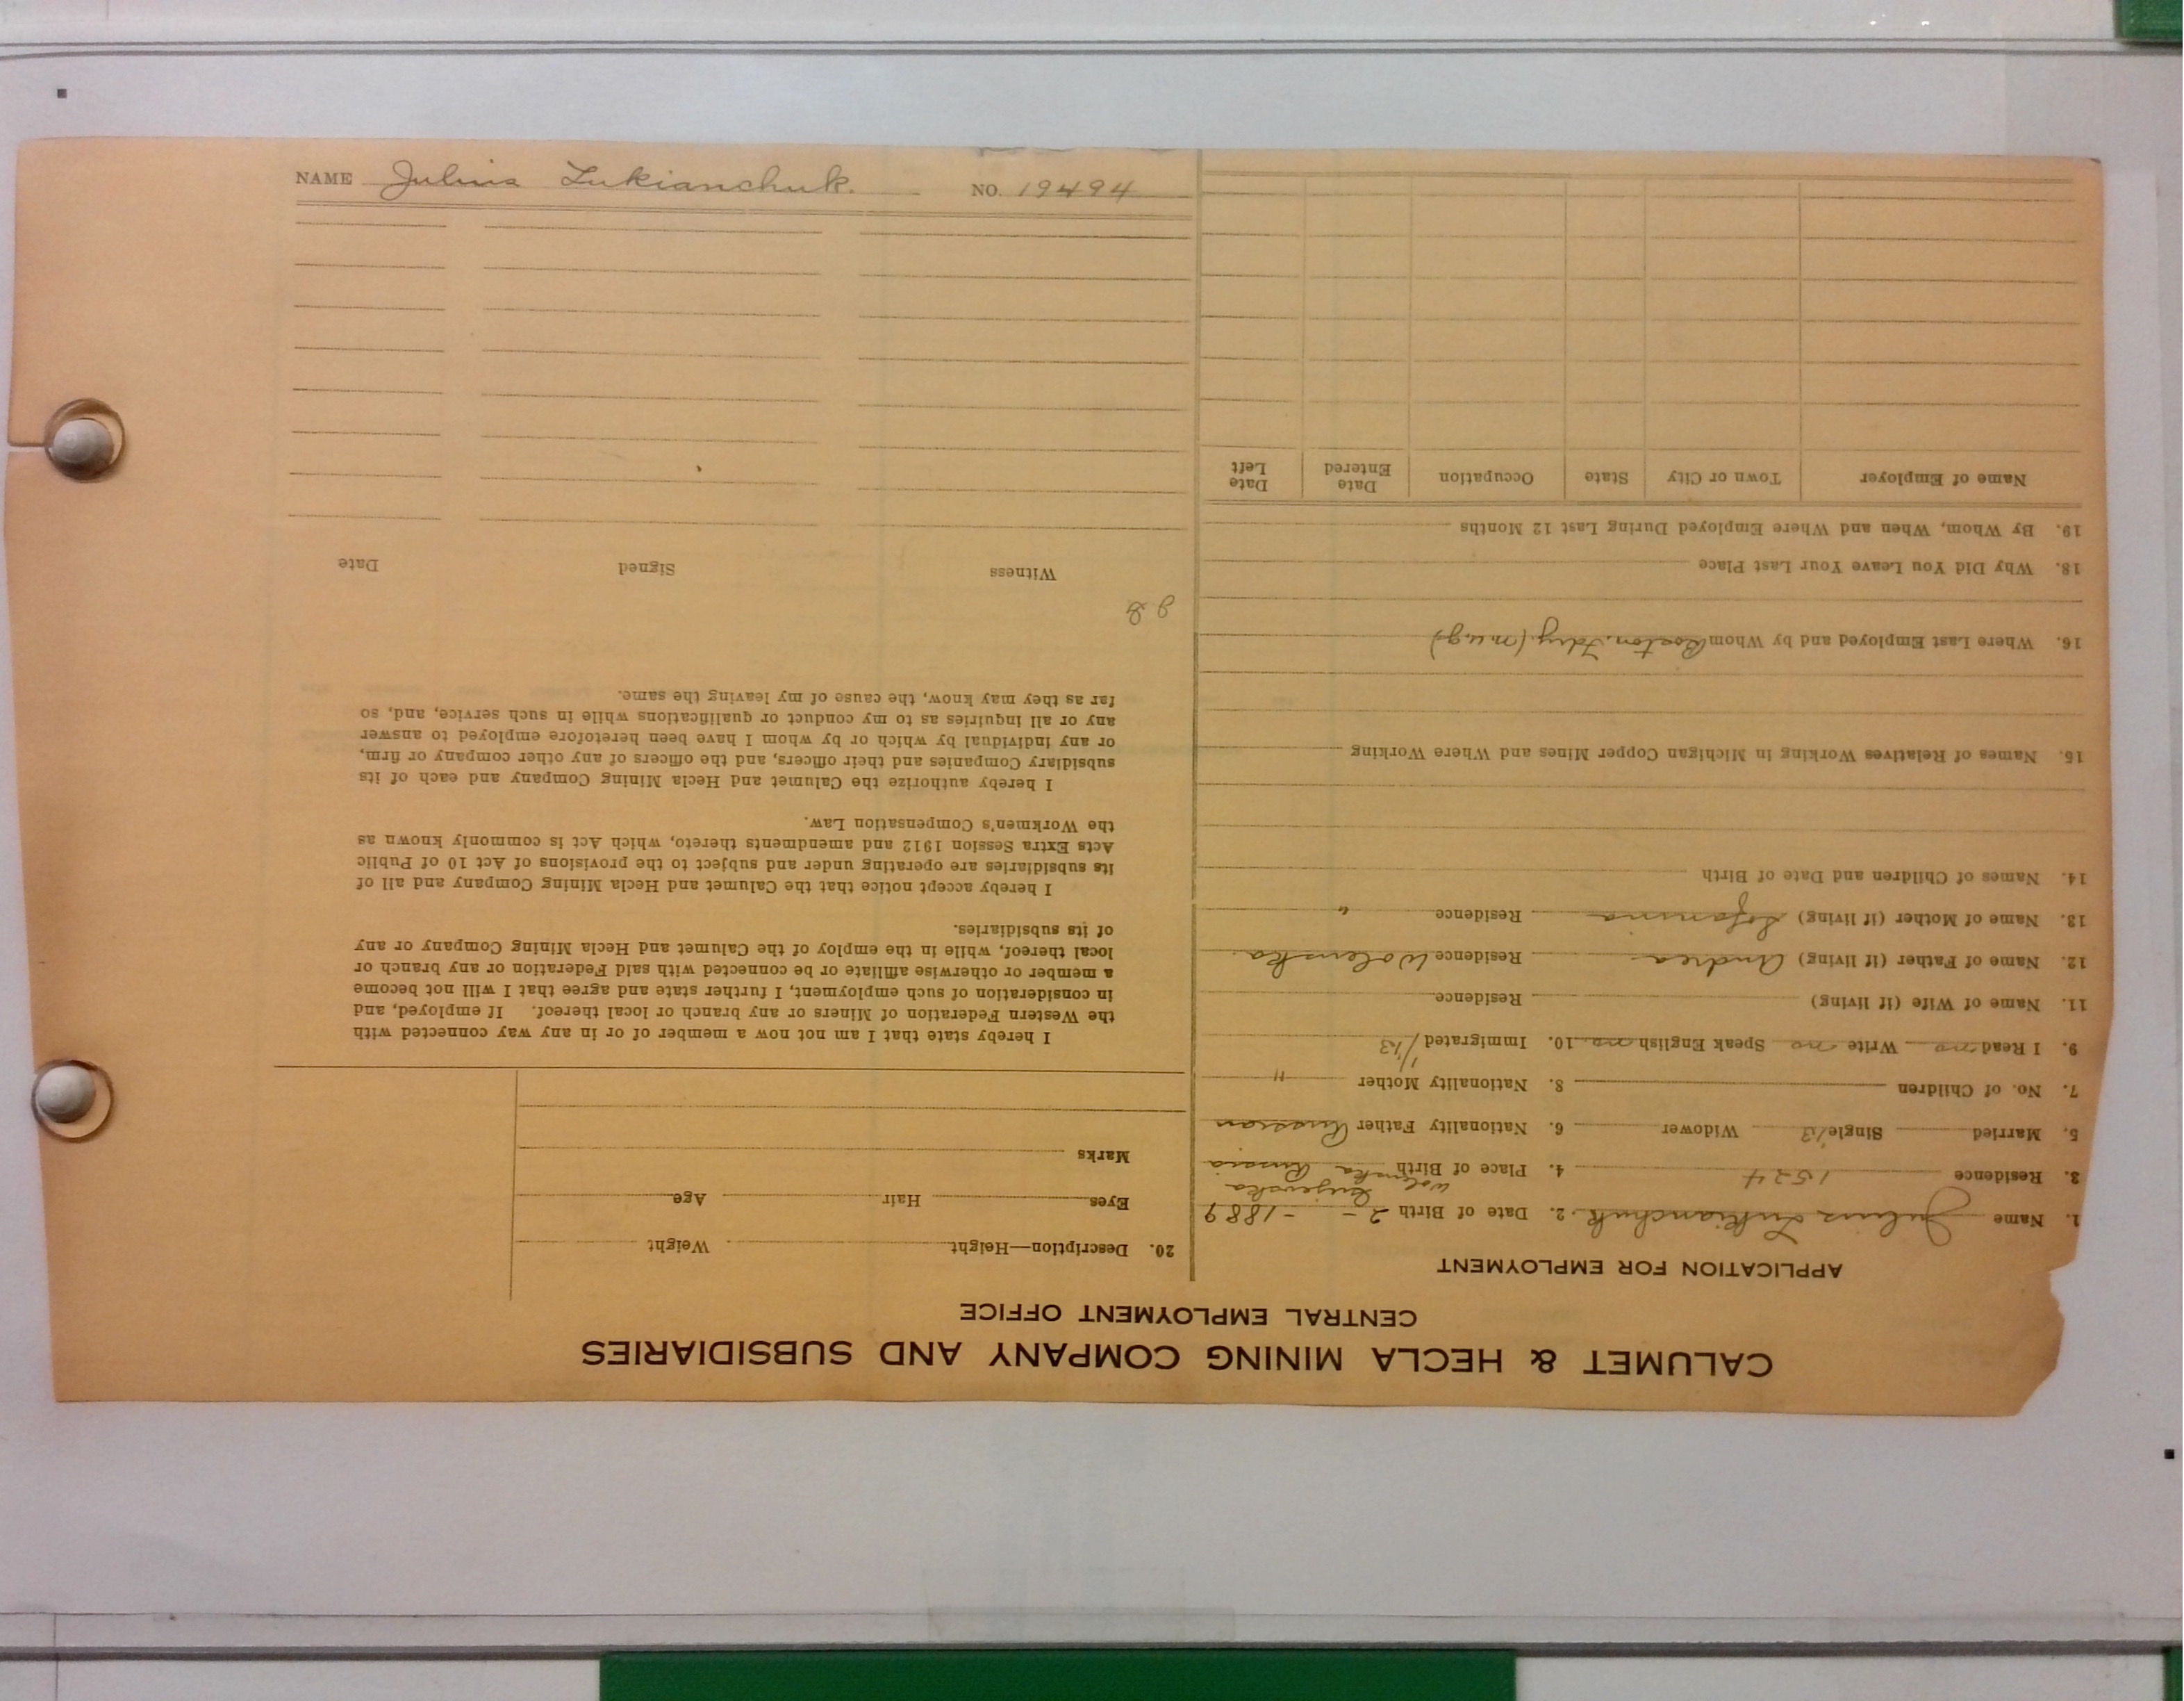 NAME Julius Lukianchuk. NO. 19494
CALUMET & HECLA MINING COMPANY AND SUBSIDIARIES
CENTRAL EMPLOYMENT OFFICE
APPLICATION FOR EMPLOYMENT
1. Name Julius Lukianchuk. 2. Date of Birth 2 - - 1889
3. Residence 1524 4. Place of Birth Russia
5. Married Single Widower 6. Nationality Father Russian
7. No. of Children 8. Nationality Mother "
9. I Read no Write no Speak English no 10. Immigrated 1/13
11. Name of Wife (if living) Residence
12. Name of Father (if living) Andrea Residence Wolenska
13. Name of Mother (if living) Residence "
14. Names of Children and Date of Birth
15. Names of Relatives Working in Michigan Copper Mines and Where Working
16. Where Last Employed and by Whom Boston
18. Why Did You Leave Your Last Place
19. By Whom, When and Where Employed During Last 12 Months
Name of Employer Town or City State Occupation Date Entered Date Left
20. Description—Height Weight
Eyes Hair Age
Marks
I hereby state that I am not now a member of or in any way connected with
the Western Federation of Miners or any branch or local thereof. If employed, and
in consideration of such employment, I further state and agree that I will not become
a member or otherwise affiliate or be connected with said Federation or any branch or
local thereof, while in the employ of the Calumet and Hecla Mining Company or any
of its subsidiaries.
I hereby accept notice that the Calumet and Hecla Mining Company and all of
its subsidiaries are operating under and subject to the provisions of Act 10 of Public
Acts Extra Session 1912 and amendments thereto, which Act is commonly known as
the Workmen's Compensation Law.
I hereby authorize the Calumet and Hecla Mining Company and each of its
subsidiary Companies and their officers, and the officers of any other company or firm,
or any individual by which or by whom I have been heretofore employed to answer
any or all inquiries as to my conduct or qualifications while in such service, and, so
far as they may know, the cause of my leaving the same.
Witness Signed Date